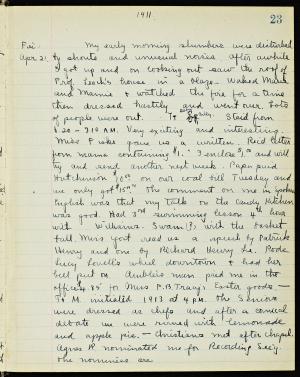 1911
23
Fri. My early morning slumbers were disturbed
Apr. 21 by shouts and unusual noises after awhile
I got up and on looking out saw the roof of
Prof. Leach's house in a blaze. Waked Marie
and Mamie & watched the fire for a time
then dressed hastily and went over. Lots
of people were out. Stood from
6.20 - 7.10 A.M. Very exciting and interesting.
Miss gave us a written. Rec'd letter
from mama containing $1. I enclose and will
try and send another next week. Papa paid
Hutchinson on our coal bill Tuesday and
we only got The comment on me in
English was that my talk on the Candy Kitchen
was good. Had 3rd swimming lesson 4th hour
with Williams. Swam (?) with the basket
ball. Miss read us a speech by Patrick
Henry and one by Richard Henry Lee. Rode
Lucy Lovell's wheel downtown & had her
bell put on man paid me in the
office 85¢ for Miss P.B. Tracy's Easter goods —
initiated 1913 at 4 P.M. The Seniors
were dressed as chefs and after a comical
debate we were served with lemonade
and apple pie. — Christians met after chapel.
Agnes R. nominated me for Recording Sec'y.
The nominees are